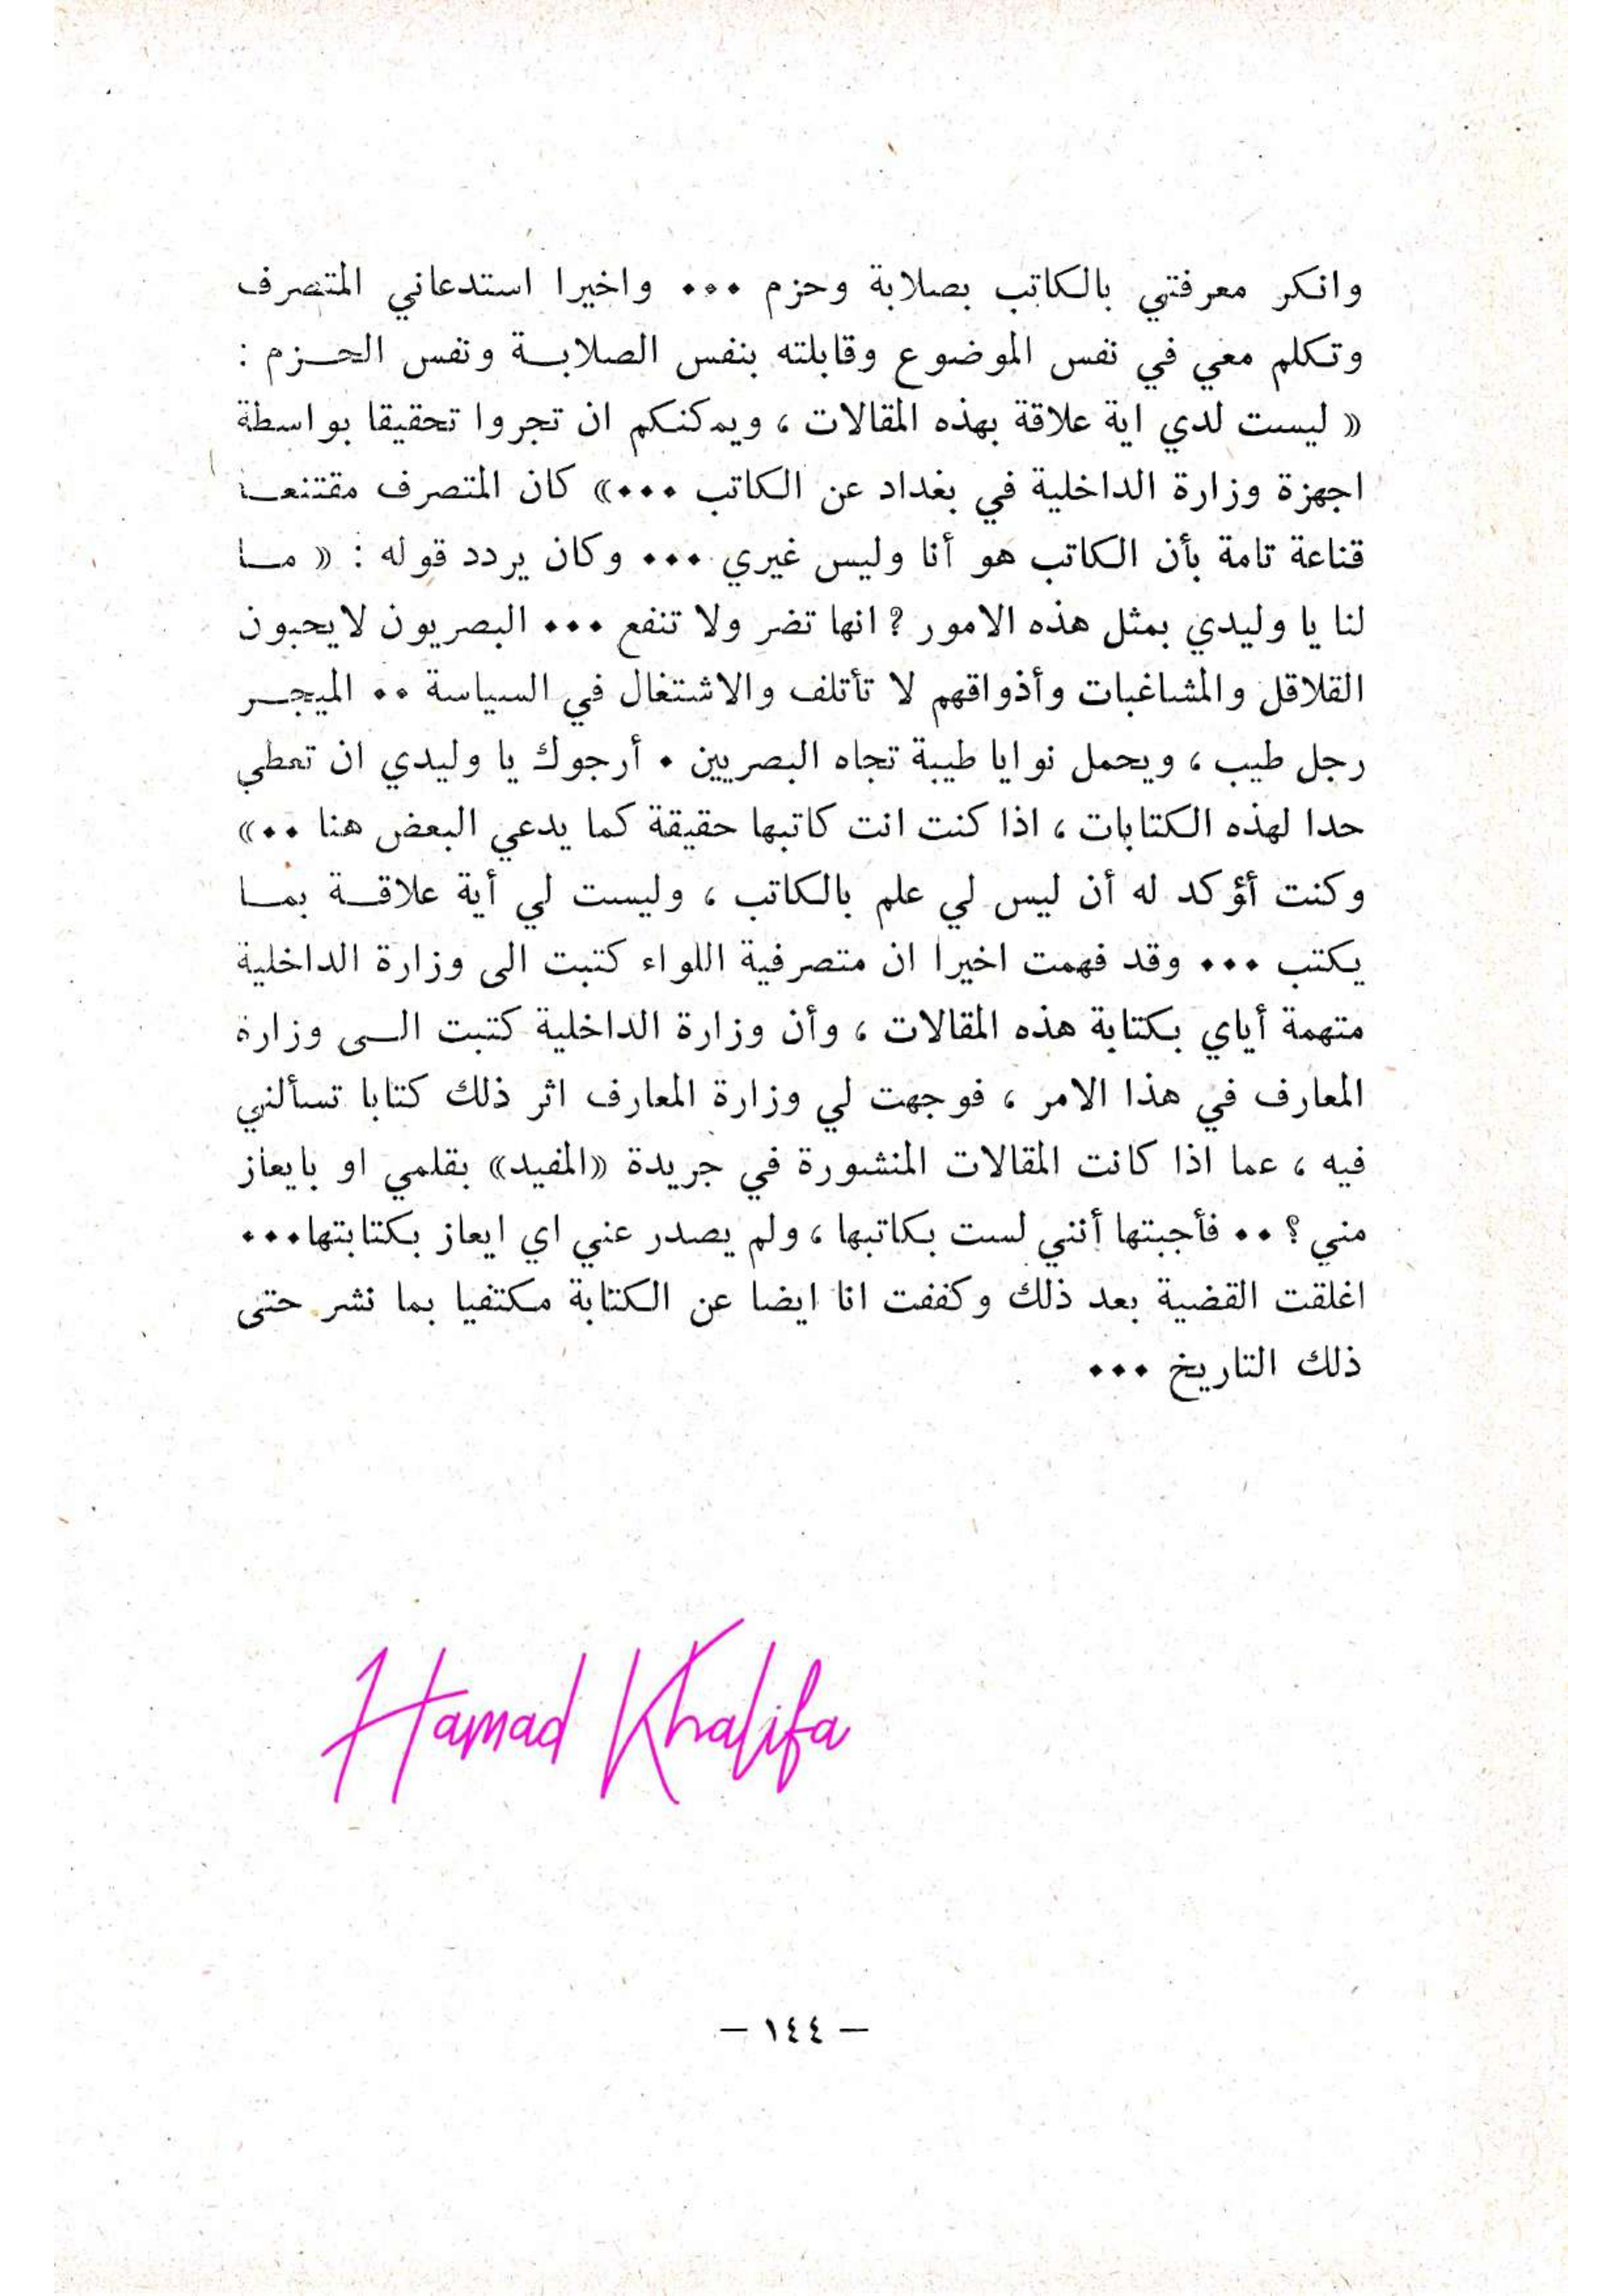 وانكر معرفتي بالكاتب بصلابة وحزم ... واخيرا استدعاني المتصرف
وتكلم معي في نفس الموضوع وقابلته بنفس الصلابة ونفس الحزم :
« ليست لدي اية علاقة بهذه المقالات ، ويمكنكم ان تجروا تحقيقا بواسطة
اجهزة وزارة الداخلية في بغداد عن الكاتب ...» كان المتصرف مقتنعا
قناعة تامة بأن الكاتب هو أنا وليس غيري ... وكان يردد قوله : « ما
لنا يا وليدي بمثل هذه الامور ? انها تضر ولا تنفع ... البصريون لايحبون
القلاقل والمشاغبات وأذواقهم لا تأتلف والاشتغال في السياسة .. الميجر
رجل طيب ، ويحمل نوايا طيبة تجاه البصريين . أرجوك يا وليدي ان تعطي
حدا لهذه الكتابات ، اذا كنت انت كاتبها حقيقة كما يدعي البعض هنا ..»
وكنت أؤكد له أن ليس لي علم بالكاتب ، وليست لي أية علاقة بما
يكتب ... وقد فهمت اخيرا ان متصرفية اللواء كتبت الى وزارة الداخلية
متهمة أياي بكتابة هذه المقالات ، وأن وزارة الداخلية كتبت الى وزارة
المعارف في هذا الامر ، فوجهت لي وزارة المعارف اثر ذلك كتابا تسألني
فيه ، عما اذا كانت المقالات المنشورة في جريدة «المفيد» بقلمي او بايعاز
مني ؟ .. فأجبتها أنني لست بكاتبها ، ولم يصدر عني اي ايعاز بكتابتها...
اغلقت القضية بعد ذلك وكففت انا ايضا عن الكتابة مكتفيا بما نشر حتى
ذلك التاريخ ...
Hamad Khalifa
— ١٤٤ —